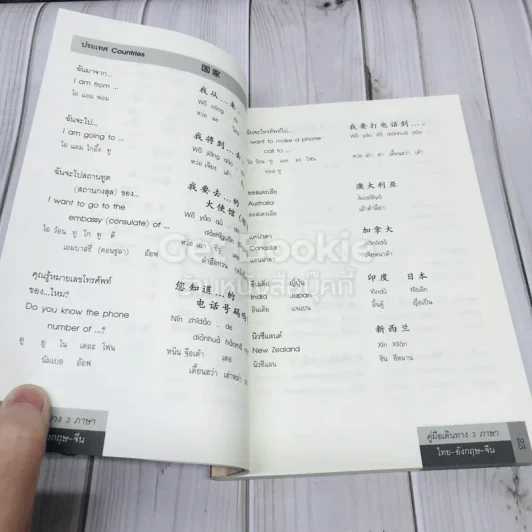 ประเทศ Countries 国家
ฉันมาจาก... 我从...来
I am from ... Wǒ cóng
ไอ แอม ฟรอม
ฉันจะไป... 我将到...去
I am going to ... Wǒ jiāng dào
ไอ แอม โกอิ้ง ทู
ฉันจะไปสถานทูต 我要去...的
(สถานกงสุล) ของ... 大使馆
I want to go to the Wǒ yào qù
embassy (consulate) of ... dàshǐguǎn
ไอ ว้อน ทู โก ทู ดิ
เอมบาสซี่ (คอนซูล่า) อ๊อฟ
คุณรู้หมายเลขโทรศัพท์ 您知道...的
ของ...ไหม? 电话号码吗
Do you know the phone Nín zhīdào ... de
number of ...? diànhuà hàomǎ
ดู ยู โน เดอะ โฟน
นัมเบอ อ๊อฟ
ทาง 3 ภาษา
อังกฤษ-จีน
ฉันจะโทรศัพท์ไป... 我要打电话到...
want to make a phone Wǒ yào dǎ diànhuà dào
call to ...
ไอ ว้อน ทู เมค อะ โฟน
คอล ทู
ออสเตรเลีย 澳大利亚
Australia Àodàlìyà
ออสเตรเลีย
แคนาดา 加拿大
Canada Jiānádà
แคนาดา
อินเดีย ญี่ปุ่น 印度 日本
India Japan Yìndù
อินเดีย แจแปน อิ้นตู้
นิวซีแลนด์ 新西兰
New Zealand Xīn Xīlán
นิวซีแลน ซิน ซีหลาน
คู่มือเดินทาง 3 ภาษา
ไทย-อังกฤษ-จีน
Get Bookie
ร้านหนังสือบุ๊คกี้